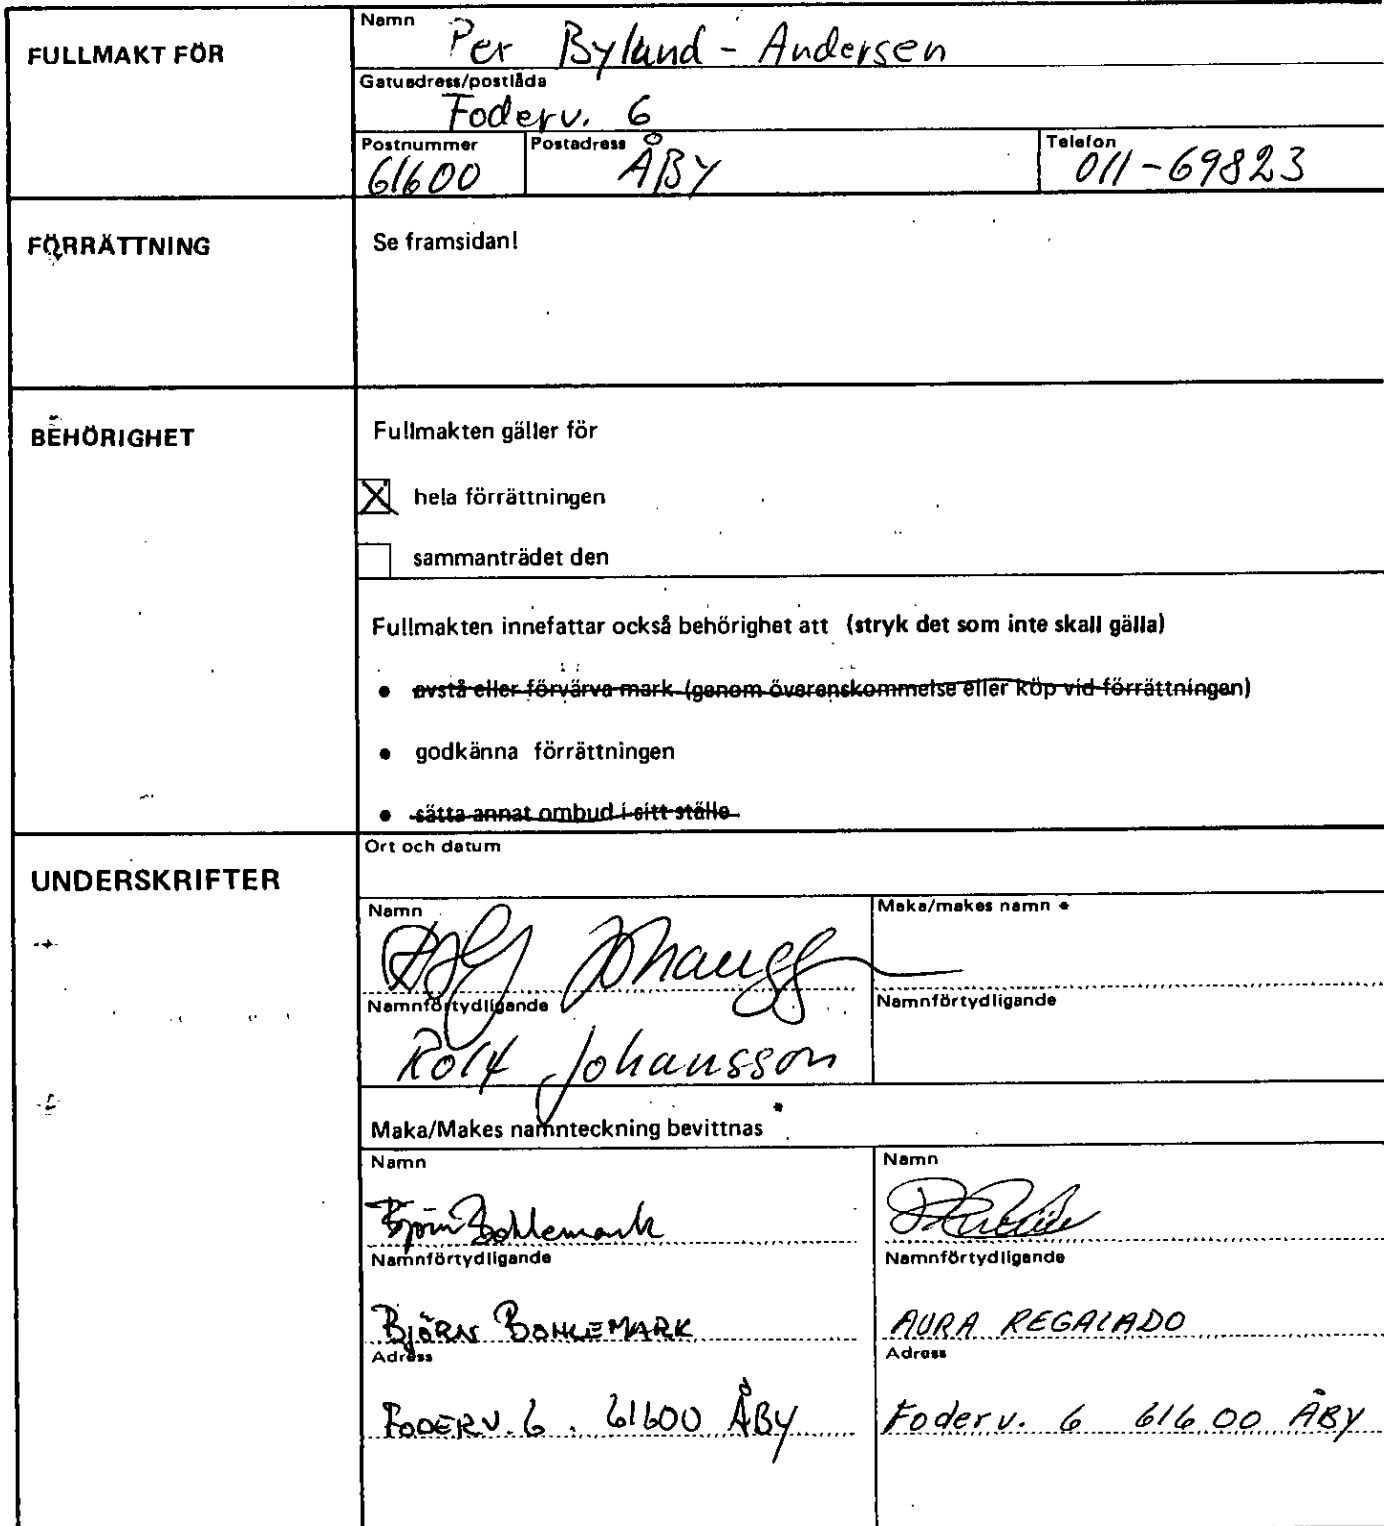 FULLMAKT FÖR
Namn
Per Bylund - Andersen
Gatuadress/postlåda
Foderv. 6
Postnummer Postadress Telefon
61600 ÅBY 011-69823
FÖRRÄTTNING
Se framsidan!
BEHÖRIGHET
Fullmakten gäller för
hela förrättningen
sammanträdet den
Fullmakten innefattar också behörighet att (stryk det som inte skall gälla)
• avstå eller förvärva mark (genom överenskommelse eller köp vid förrättningen)
• godkänna förrättningen
• sätta annat ombud i sitt ställe
UNDERSKRIFTER
Ort och datum
Namn
Maka/makes namn *
Namnförtydligande
Rolf Johansson
Namnförtydligande
Maka/Makes namnteckning bevittnas *
Namn
Björn Bohlemark
Namnförtydligande
BJÖRN BOHLEMARK
Adress
FODERV. 6 . 61600 ÅBY
Namn
Namnförtydligande
AURA REGALADO
Adress
Foderv. 6 616 00 ÅBY